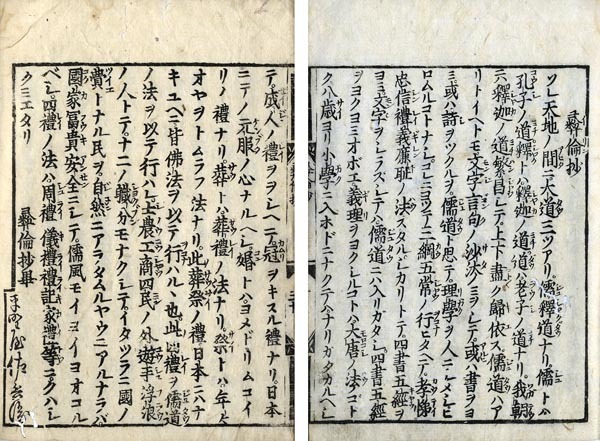 彝倫抄
ソレ天地ノ間ニ大道三ツアリ儒釋道ナリ儒トハ
孔子ノ道釋トハ釋迦ノ道道ハ老子ノ道ナリ我朝
ニハ釋迦ノ道繁昌シテ上下盡ク歸依ス儒道ハア
リトイヘトモ文字言句ノ沙汰ノミヲシテ或ハ書ヲヨ
ミ或ハ詩ヲツクルヲ儒道ト思テ理學ヲ人ニシメシヒ
ロムルコトナシコレニヨツテ三綱五常ノ行モタヘテ孝悌
忠信禮義廉恥ノ法スタルバカリトテ四書五經
ヨミ文字ヲシラズシテハ儒道ニハ入リガタシ四書五經
ヲヨクヨミオボエ義理ヲヨクシルコトハ大唐ノ法ノゴト
ク八歳ヨリ小學ニ入ホドニナクテハナリガタカルベシ
テ成人ノ禮ヲヲシヘテ冠ヲキスル禮ナリ日本
ニテノ元服ノ心ナルベシ婚トハヨメドリムコイ
リノ禮ナリ葬トハ葬禮ノ法ナリ祭トハ年々
オヤヲトムラフ法ナリ此葬祭ノ禮日本ニハナ
キユヘニ皆佛法ヲ以テ行ハルヽ也此四禮ヲ儒道
ノ法ヲ以テ行ハレ士農工商四民ノ外遊手浮浪
ノ人トテナニノ職分モナクシテイタツラニ國ノ
費トナル民ヲ自然ニアラタムルヤウニアルナラバ
國家冨貴安全ニシテ儒風モイヨイヨオコル
ベシ四禮ノ法ハ周禮儀禮禮記家禮等ニクハシ
クミエタリ 彝倫抄畢